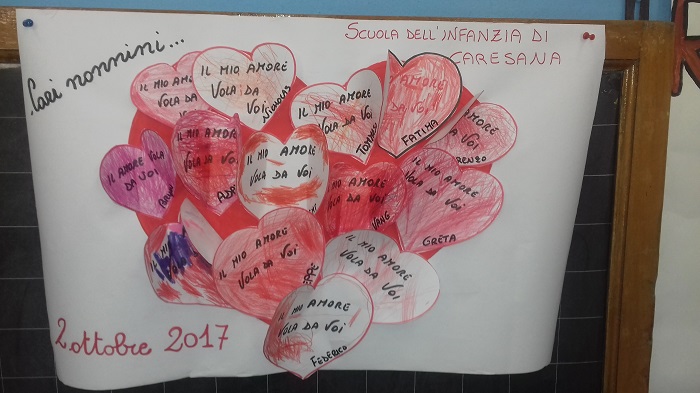 Cari nonnini...
SCUOLA DELL'INFANZIA DI
CARESANA
IL MIO AMORE
VOLA DA
IL MIO AMORE
VOLA DA
VOI
NICHOLAS
IL MIO AMORE
VOLA DA VOI
TOMMASO
AMORE
DA VOI
FATIMA
AMORE
DA VOI
IL AMORE VOLA
DA VOI
IL MIO AMORE
VOLA DA VOI
IL MIO AMORE
VOLA DA VOI
IL MIO AMORE
VOLA DA VOI
IL MIO AMORE
VOLA DA VOI
GRETA
IL MIO
IL MIO AMORE
VOLA DA VOI
IL MIO AMORE
VOLA DA VOI
IL MIO AMORE
VOLA DA VOI
FEDERICO
2 ottobre 2017